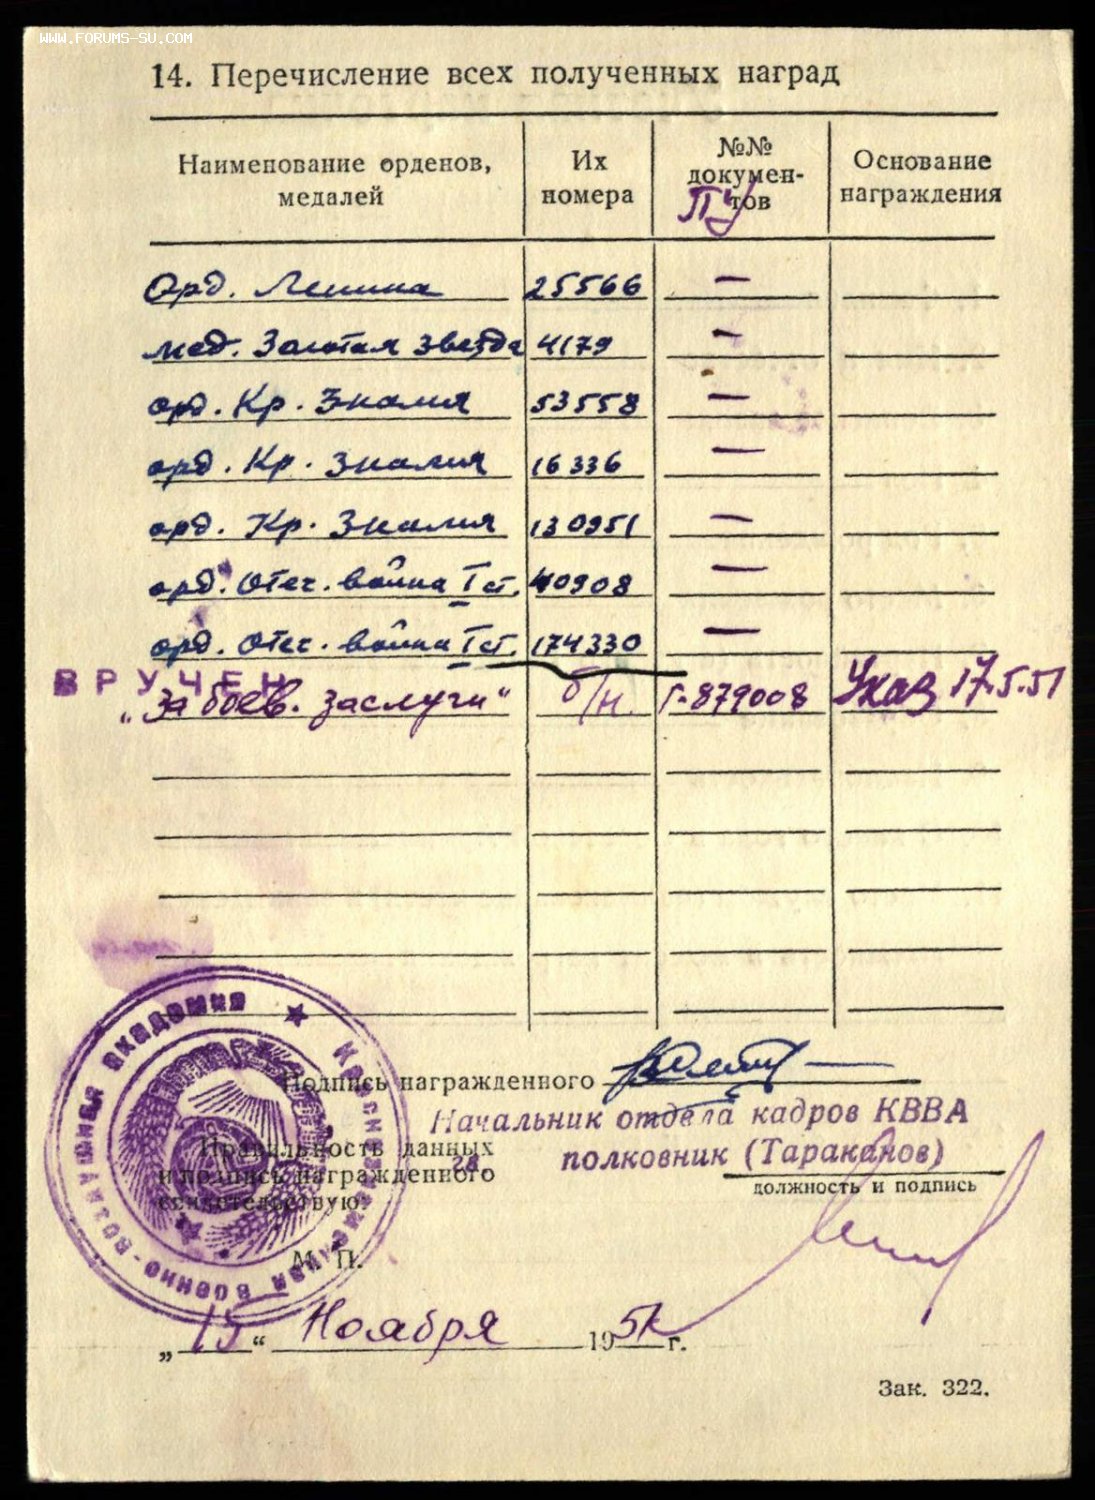 WWW.FORUMS-SU.COM
14. Перечисление всех полученных наград
Наименование орденов, медалей
Их номера
№№ докумен-тов
ПУ
Основание награждения
Орд. Ленина 25566 —
мед. Золотая звезда 4179 —
орд. Кр. Знамя 53558 —
орд. Кр. Знамя 16336 —
орд. Кр. Знамя 130951 —
орд. Отеч. война I ст. 40908 —
орд. Отеч. война I ст. 174330 —
ВРУЧЕН
„За боев. заслуги“ б/н. Г-879008 Указ 17.5.51
Подпись награжденного
Начальник отдела кадров КВВА
полковник (Тараканов)
должность и подпись
Правильность данных
и подпись награжденного
свидетельствую.
М. П.
Краснознаменная Военно-воздушная академия
„15“ Ноября 1951 г.
Зак. 322.